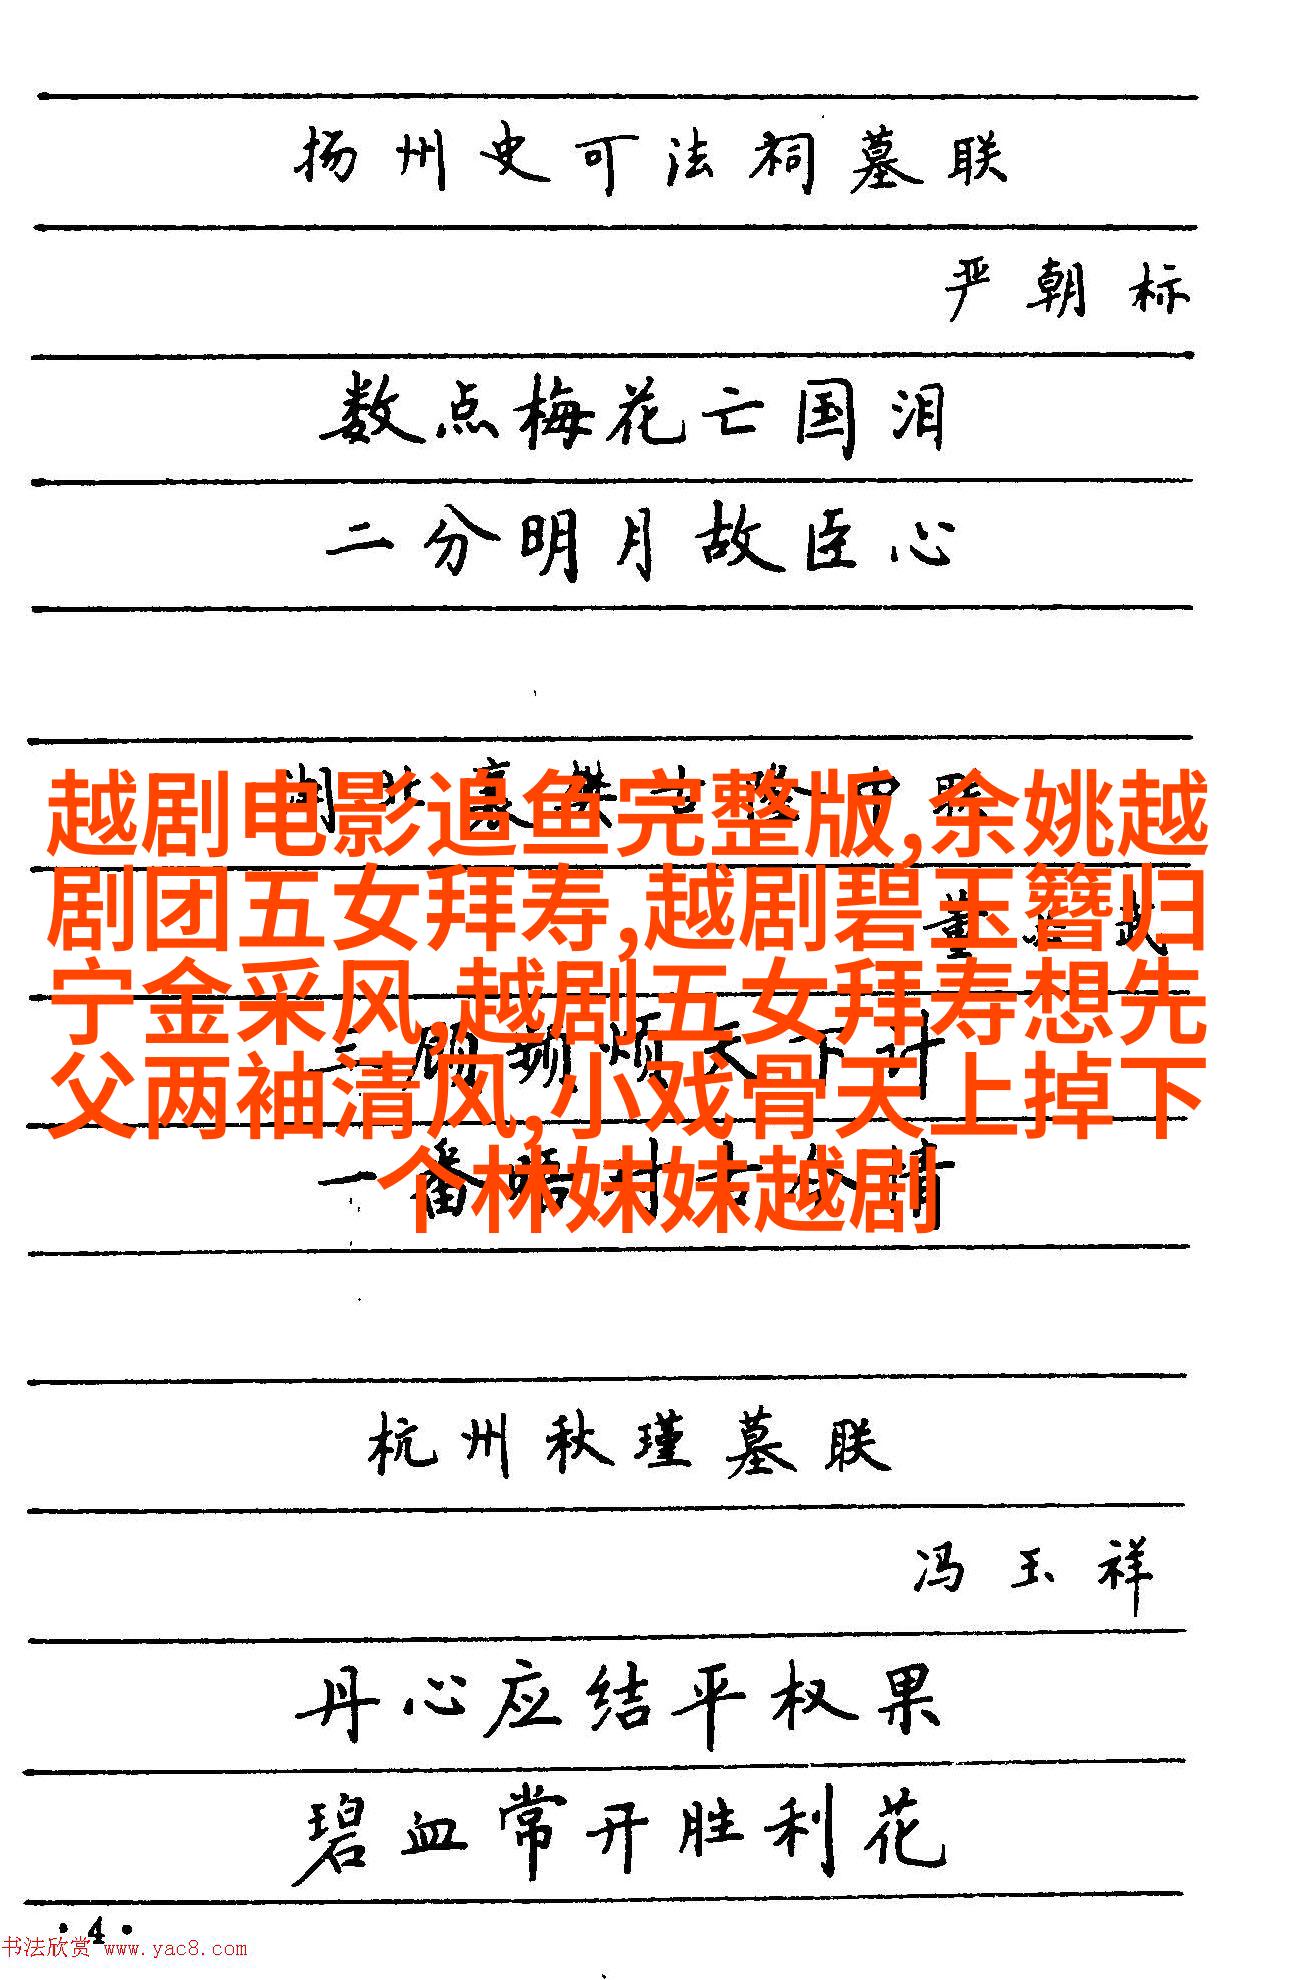 扬州史可法祠墓联
严朝标
数点梅花亡国泪
二分明月故臣心
越剧电影追鱼完整版,余姚越
剧团五女拜寿,越剧碧玉簪归
宁金采风,越剧五女拜寿想先
父两袖清风,小戏骨天上掉下
个林妹妹越剧
三顾频烦天下计
一番晤对古今情
杭州秋瑾墓联
冯玉祥
丹心应结平权果
碧血常开胜利花
·4·
书法欣赏 www.yac8.com